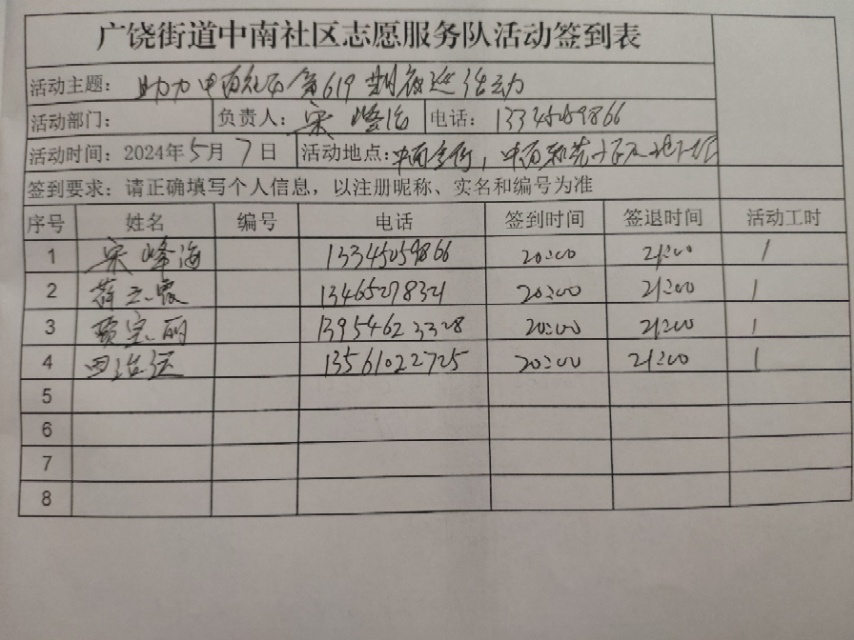 广饶街道中南社区志愿服务队活动签到表
活动主题： 助力中南社区第619期夜巡活动
活动部门： 负责人：宋峰海 电话：13345059866
活动时间：2024年5月7日 活动地点：中南
签到要求：请正确填写个人信息，以注册昵称、实名和编号为准
序号 姓名 编号 电话 签到时间 签退时间 活动工时
1 宋峰海 13345059866 20:00 21:00 1
2 13465278321 20:00 21:00 1
3 贾宝丽 13954623328 20:00 21:00 1
4 田治廷 13561022725 20:00 21:00 1
5
6
7
8